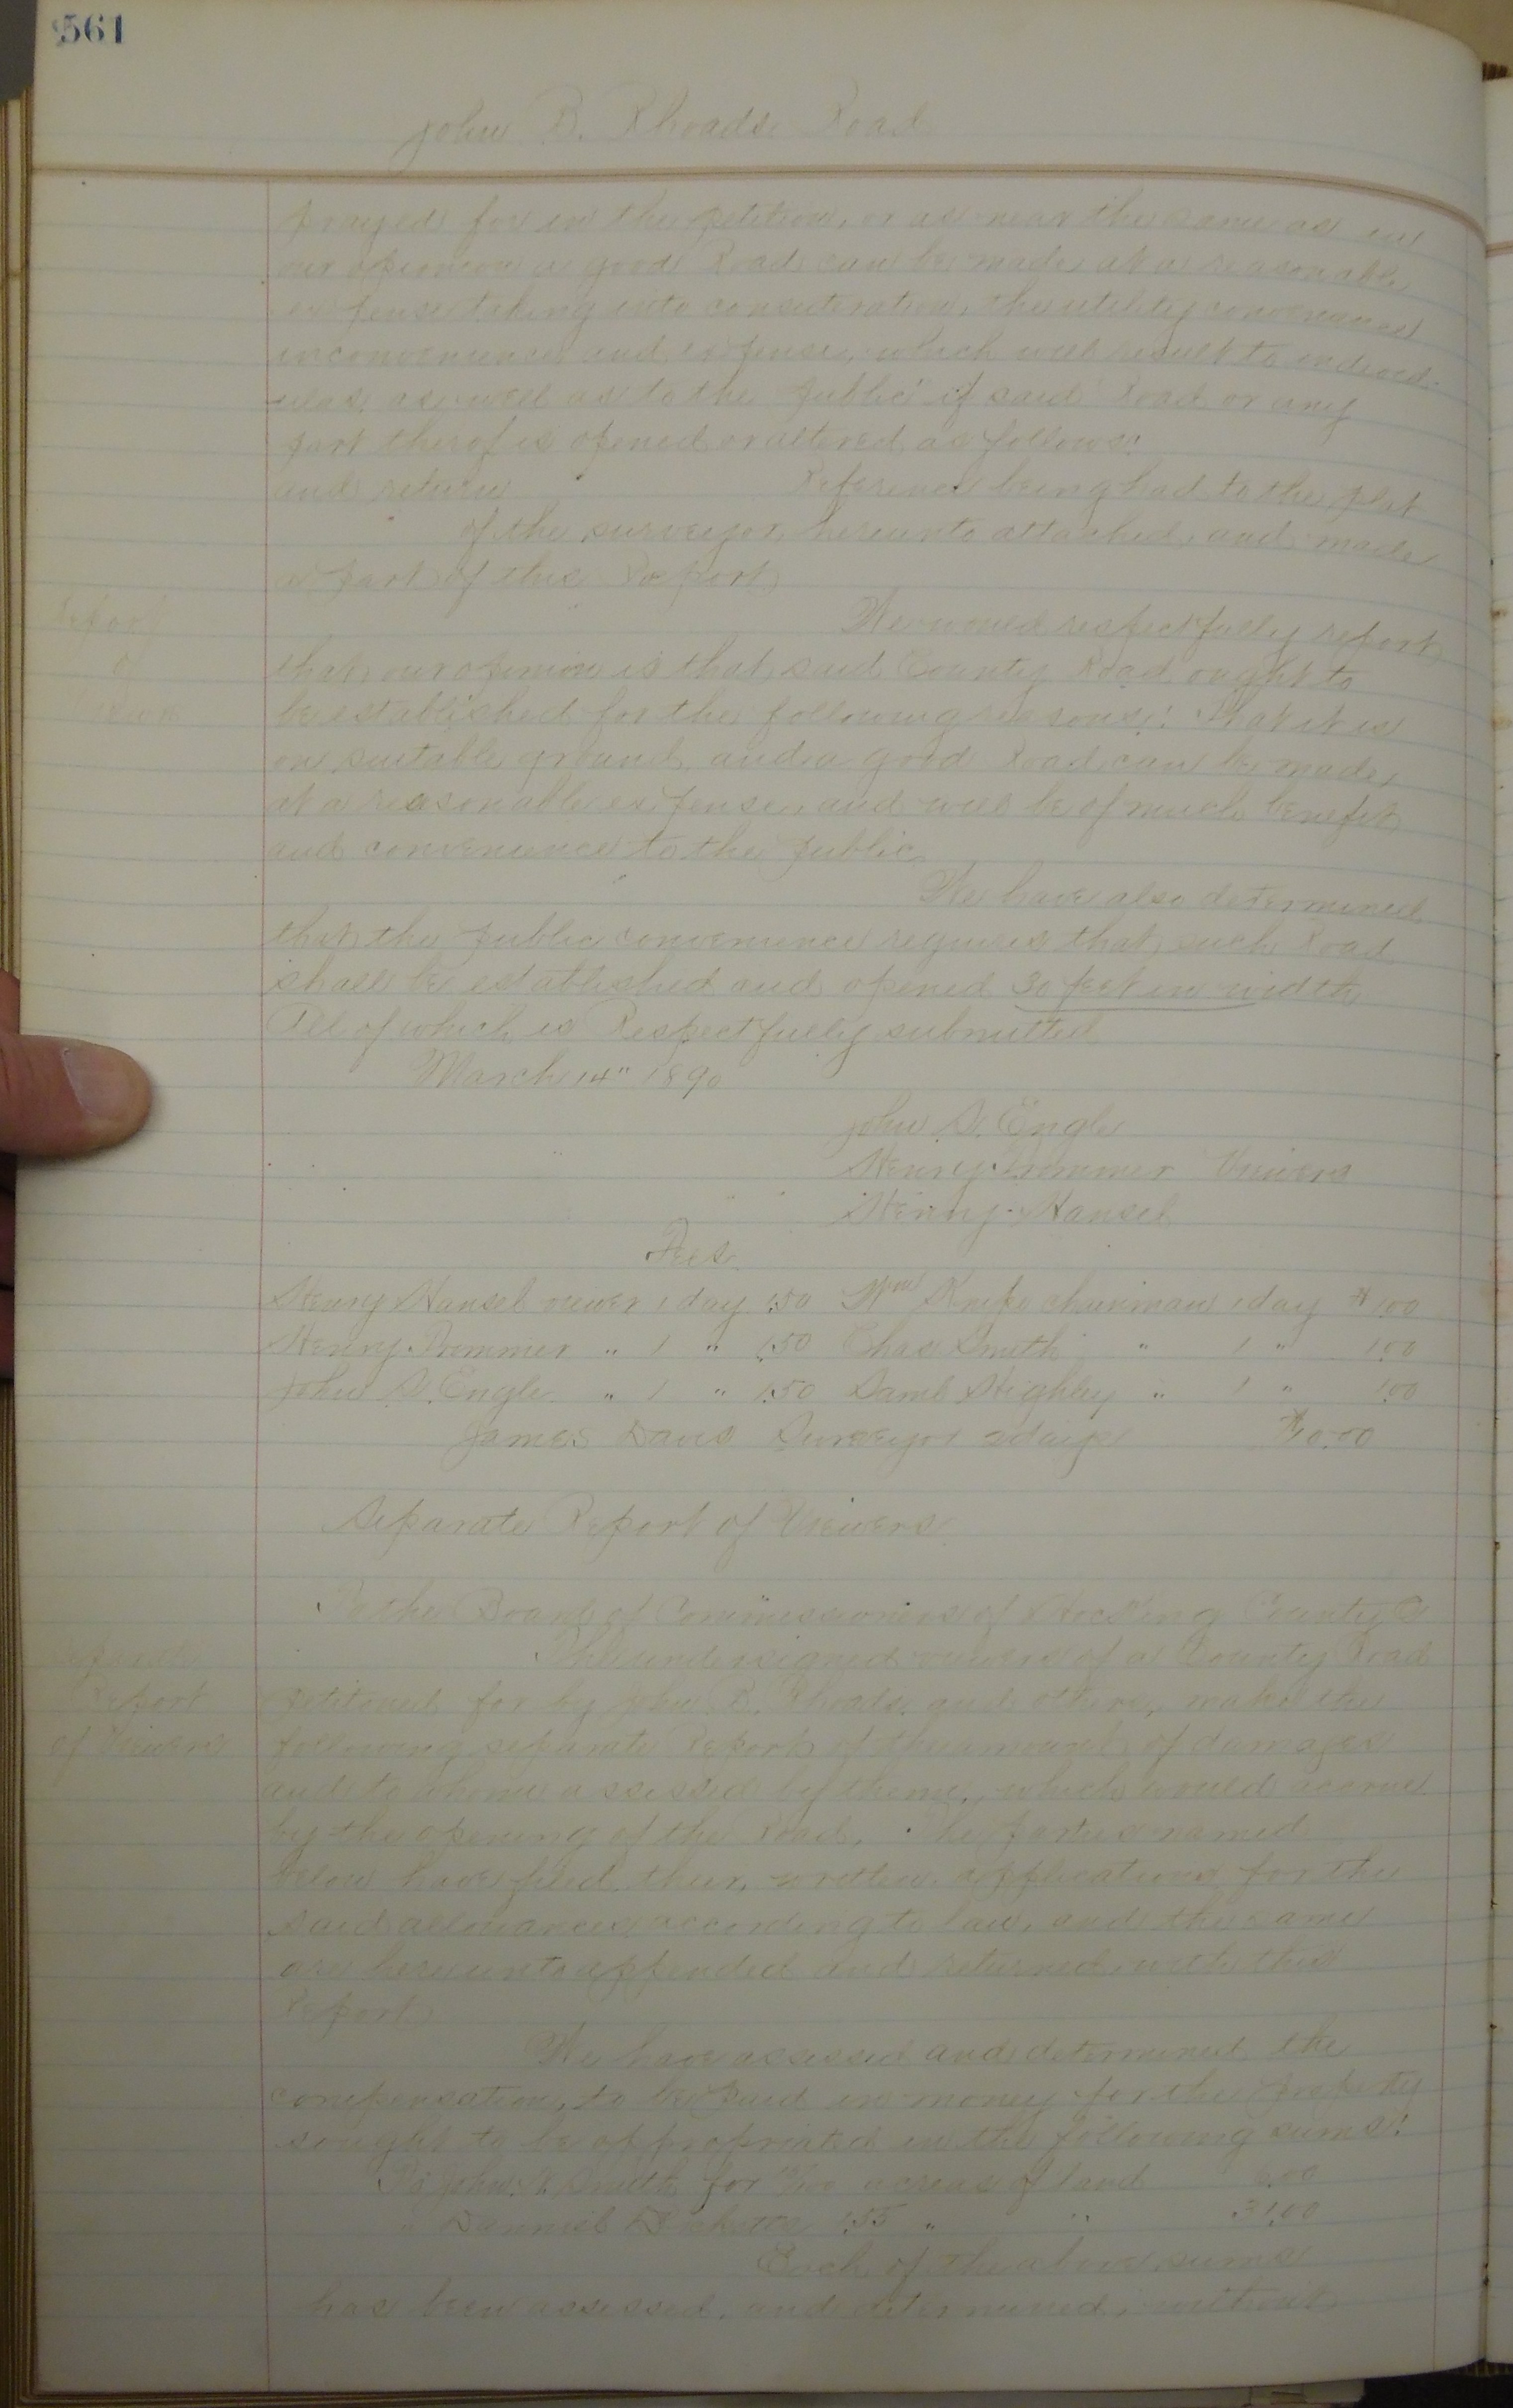 561
John B. Rhoads. Road
prayed for in the petition, or as near the same as in
our opinion a good Road can be made at a reasonable
expense taking into consideration, the utility convenience
inconvenience and expense, which will result to individ-
uals. as well as to the public if said Road or any
part therof is opened or altered as follows:
and return Reference being had to the plat
of the surveyor, hereunto attached, and made
a part of this Report
We would respectfully report
Report
of
that our opinion is that said County Road ought to
be established for the following reasons: That it is
on suitable ground and a good Road can be made,
at a reasonable expense, and will be of much benefit
and convenience to the public
We have also determined
that the public convenience requires that such Road
shall be established and opened 30 feet in width
All of which is Respectfully submitted
March 14" 1890
John S. Engle
Henry Viewers
Henry Hansel
Fees.
Henry Hansel viewer 1 day 1.50 Wm chainman 1 day $1.00
Henry " 1 " 1.50 Chas Smith " 1 " 1.00
John S. Engle " 1 " 1.50 Saml " 1 " 1.00
James Davis Surveyor 2 days $10.00
Separate Report of Viewers
To the Board of Commissioners of Hocking County O
The undersigned viewers of a County Road
Separate
Report
of Viewers
petitioned for by John B. Rhoads. and others, make the
following separate Report of the amount of damages
and to whom assessed by them, which would accrue
by the opening of the Road. The parties named
below have filed their, written applications for the
said allowances according to law, and the same
are hereunto appended and returned with this
Report
We have assessed and determined the
compensation, to be paid in money for the property
sought to be appropriated in the following sums:
To John Smith for acreas of land 6.00
" Danniel 1.55 " " 31.00
Each of the above sums
has been assessed, and determined, without